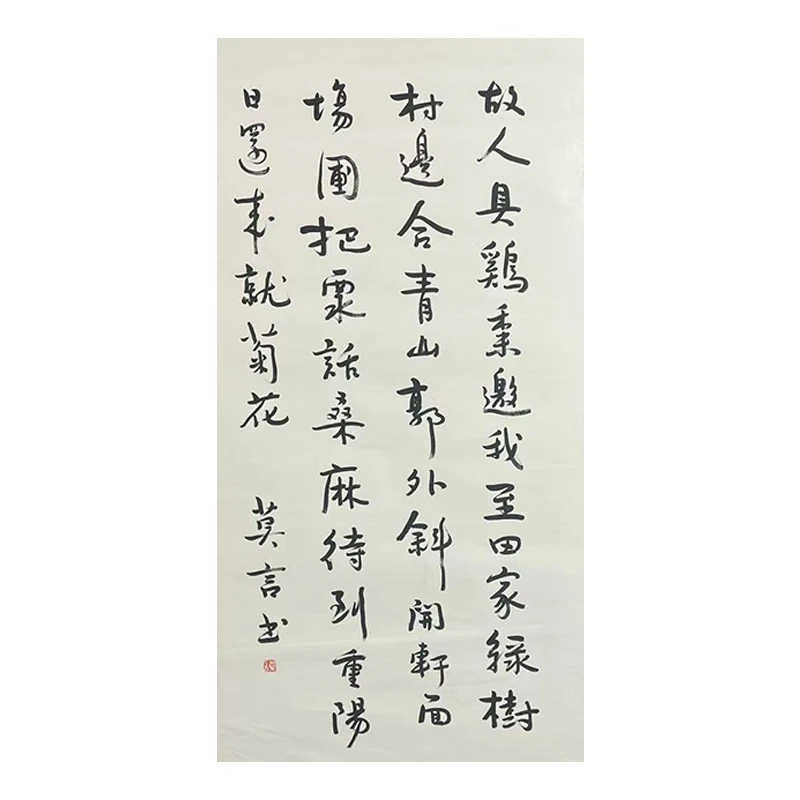 故人具鷄黍邀我至田家綠樹
村邊合青山郭外斜開軒面
場圃把話桑麻待到重陽
日還來就菊花
莫言书